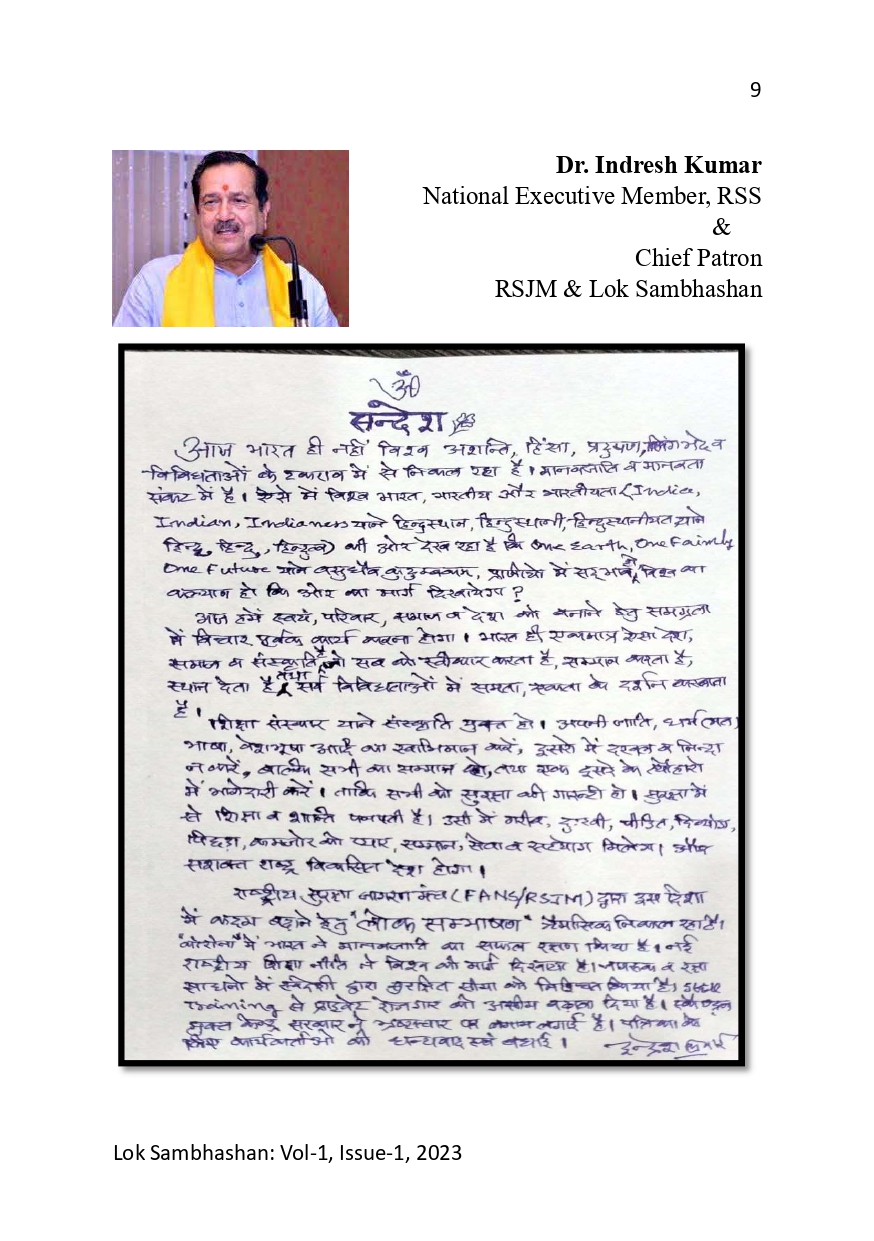 9
Dr. Indresh Kumar
National Executive Member, RSS
&
Chief Patron
RSJM & Lok Sambhashan
ॐ
सन्देश
आज भारत ही नहीं विश्व अशान्ति, हिंसा, प्रदुषण, लिंगभेद व
विविधताओं के टकराव में से निकल रहा है। मानवजाति व मानवता
संकट में है। ऐसे में विश्व भारत, भारतीय और भारतीयता (India,
Indian, Indianness याने हिन्दुस्थान, हिन्दुस्थानी, हिन्दुस्थानीयत याने
हिन्दू, हिन्दु, हिन्दुत्व) की ओर देख रहा है कि One Earth, One Faimly
One Future याने वसुधैव कुटुम्बकम, प्राणीओ में सद्भाव हो, विश्व का
कल्याण हो कि ओर का मार्ग दिखायेगा?
आज हमें स्वयं, परिवार, समाज व देश को बनाने हेतु समग्रता
में विचार पूर्वक कार्य करना होगा। भारत ही एकमात्र ऐसा देश,
समाज व संस्कृति है जो सब को स्वीकार करता है, सम्मान करता है,
स्थान देता है तथा सर्व विविधताओं में समता, एकता के दर्शन करवाता
है।
शिक्षा संस्कार याने संस्कृति युक्त हो। अपनी जाति, धर्म (मत)
भाषा, वेशभूषा आदि का स्वाभिमान करें, दुसरो में दखल व निन्दा
न करें, बल्कि सभी का सम्मान करे, तथा एक दुसरे के त्यौहारो
में भागेदारी करें। ताकि सभी को सुरक्षा की गारन्टी हो। सुरक्षा में
से शिक्षा व शान्ति पनपती है। उसी में गरीब, दुःखी, पीडित, दिव्यांग,
पिछड़ा, कमजोर को प्यार, सम्मान, सेवा व सहयोग मिलेगा। और
सशक्त राष्ट्र विकसित देश होगा।
राष्ट्रीय सुरक्षा जागरण मंच (FANS/RSJM) द्वारा इस दिशा
में कदम बढ़ाने हेतु "लोक सम्भाषण" त्रैमासिक निकाल रहा है।
"कोरोना" में भारत ने मानवजाति का सफल रक्षण किया है। नई
राष्ट्रीय शिक्षा नीति ने विश्व को मार्ग दिखाया है। व रक्षा
साधनो में स्वदेशी द्वारा सुरक्षित सीमा को निश्चित किया है। Skill
Training से प्राइवेट रोजगार को असीम बढ़ावा दिया है।
मुक्त केन्द्र सरकार ने भ्रष्टाचार पर लगाम लगाई है। पत्रिका के
लिए कार्यकर्ताओ को धन्यवाद एवं बधाई।
इन्द्रेश कुमार
Lok Sambhashan: Vol-1, Issue-1, 2023